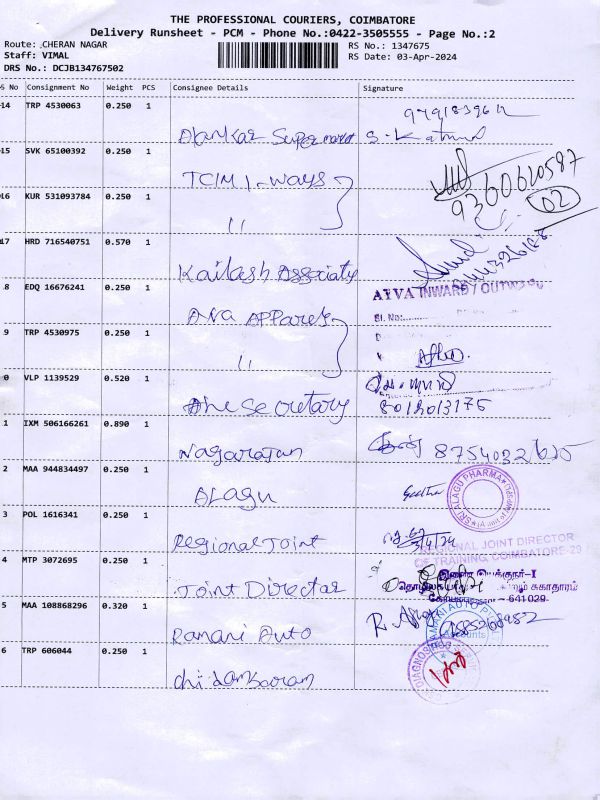 THE PROFESSIONAL COURIERS, COIMBATORE
Delivery Runsheet - PCM - Phone No.:0422-3505555 - Page No.:2
Route: CHERAN NAGAR RS No.: 1347675
Staff: VIMAL RS Date: 03-Apr-2024
DRS No.: DCJB134767502
S No Consignment No Weight PCS Consignee Details Signature
14 TRP 4530063 0.250 1
Supermarket
15 SVK 65100392 0.250 1
TCIM I-WAYS
9360610587
02
16 KUR 531093784 0.250 1
"
17 HRD 716540751 0.570 1
Kailash Associaty
18 EDQ 16676241 0.250 1
AYVA INWARD / OUTWARD
Sl. No:
AVA APPares
9 TRP 4530975 0.250 1
"
0 VLP 1139529 0.520 1
The Secretary 8012013175
1 IXM 506166261 0.890 1
Nagarajan 8754032615
2 MAA 944834497 0.250 1
ALAGU Geetha
SRI ALAGU PHARMA
3 POL 1616341 0.250 1
Regional Joint 3/4/24
REGIONAL JOINT DIRECTOR
OF TRAINING, COIMBATORE-29
4 MTP 3072695 0.250 1
இணை இயக்குநர்-I
Joint Director சுகாதாரம்
641029
5 MAA 108868296 0.320 1
Ramani Auto
RAMANI AUTO
Accounts
6 TRP 606044 0.250 1
Chidambaram
DIAGNOS